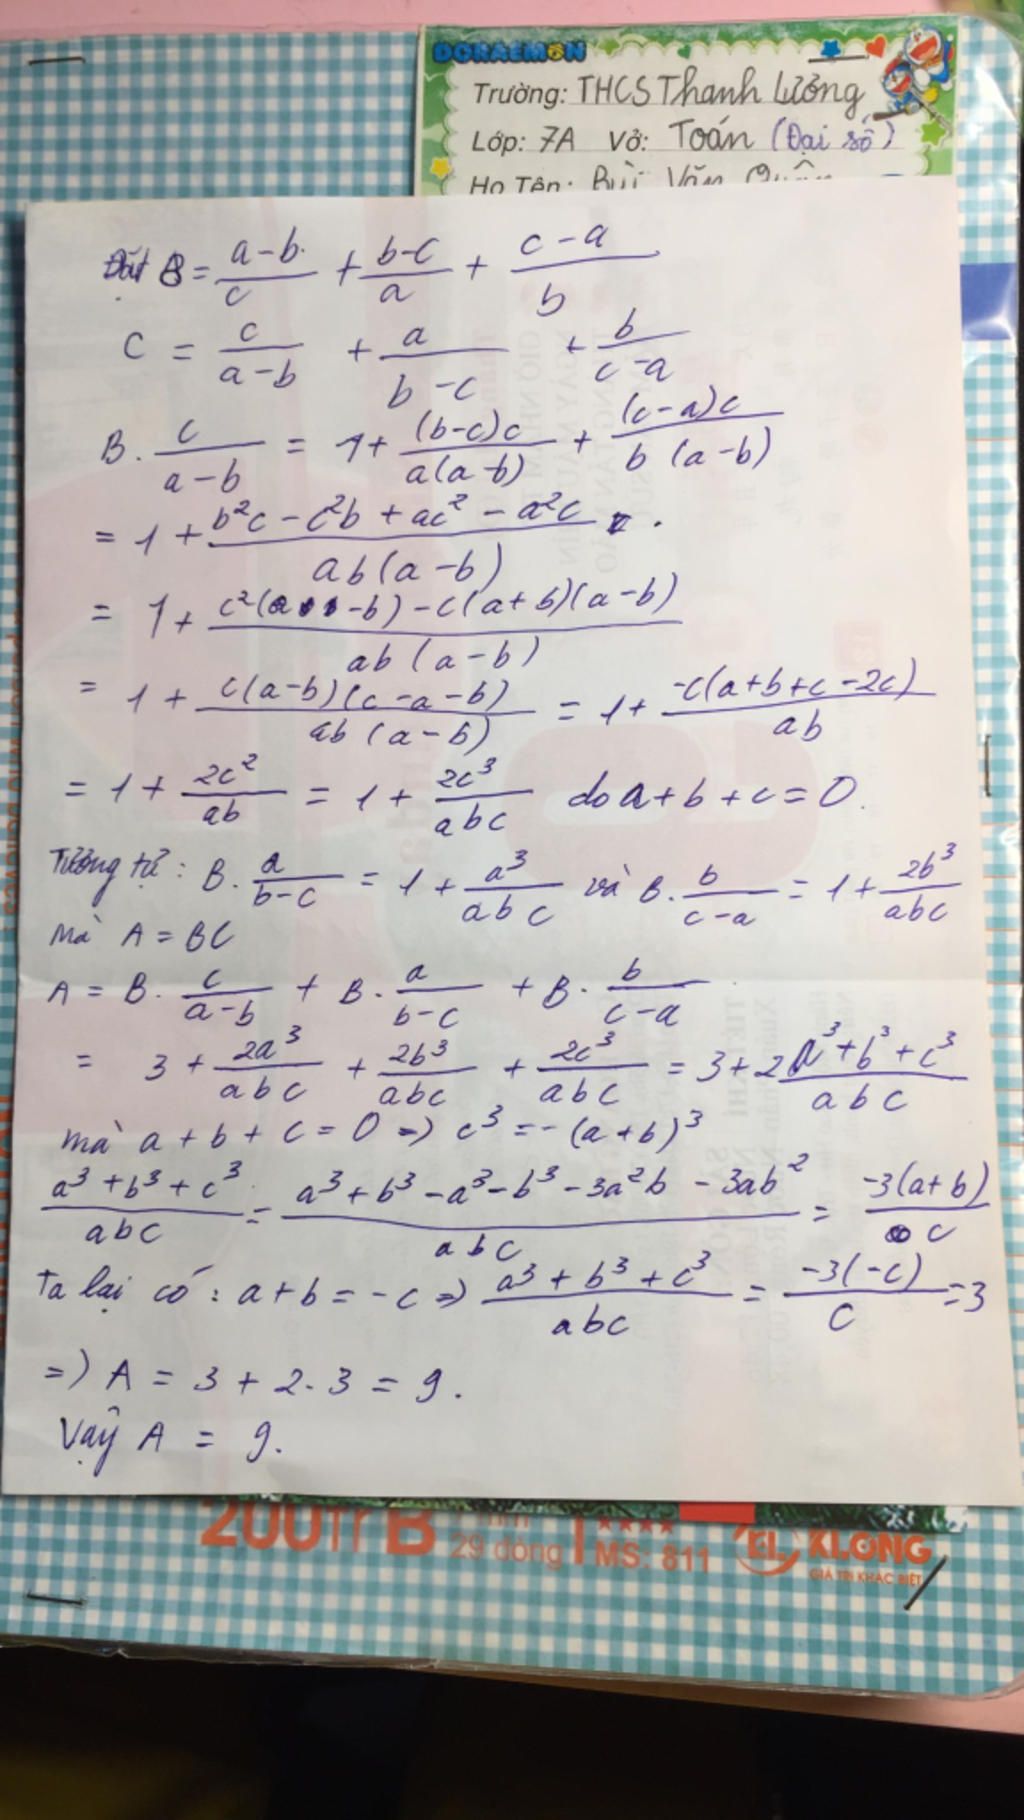 DORAEMON
Trường: THCS Thanh Lương
Lớp: 7A Vở: Toán (Đại số)
Họ Tên: Bùi Văn Quân
Đặt B = (a-b)/c + (b-c)/a + (c-a)/b
C = c/(a-b) + a/(b-c) + b/(c-a)
B. c/(a-b) = 1 + (b-c)c/a(a-b) + (c-a)c/b(a-b)
= 1 + (b²c - c²b + ac² - a²c)/ab(a-b) .
= 1 + (c²(a-b) - c(a+b)(a-b))/ab(a-b)
= 1 + c(a-b)(c-a-b)/ab(a-b) = 1 + -c(a+b+c-2c)/ab
= 1 + 2c²/ab = 1 + 2c³/abc do a+b+c = 0.
Tương tự: B. a/(b-c) = 1 + a³/abc và B. b/(c-a) = 1 + 2b³/abc
mà A = BC
A = B. c/(a-b) + B. a/(b-c) + B. b/(c-a)
= 3 + 2a³/abc + 2b³/abc + 2c³/abc = 3 + 2 (a³+b³+c³)/abc
mà a+b+c = 0 => c³ = -(a+b)³
(a³+b³+c³)/abc = (a³+b³-a³-b³-3a²b-3ab²)/abc = -3(a+b)/c
Ta lại có: a+b = -c => (a³+b³+c³)/abc = -3(-c)/c = 3
=) A = 3 + 2.3 = 9.
Vậy A = 9.
200Tr B
29 dòng
★★★★
MS: 811
KL KLONG
GIÁ TRỊ KHÁC BIỆT